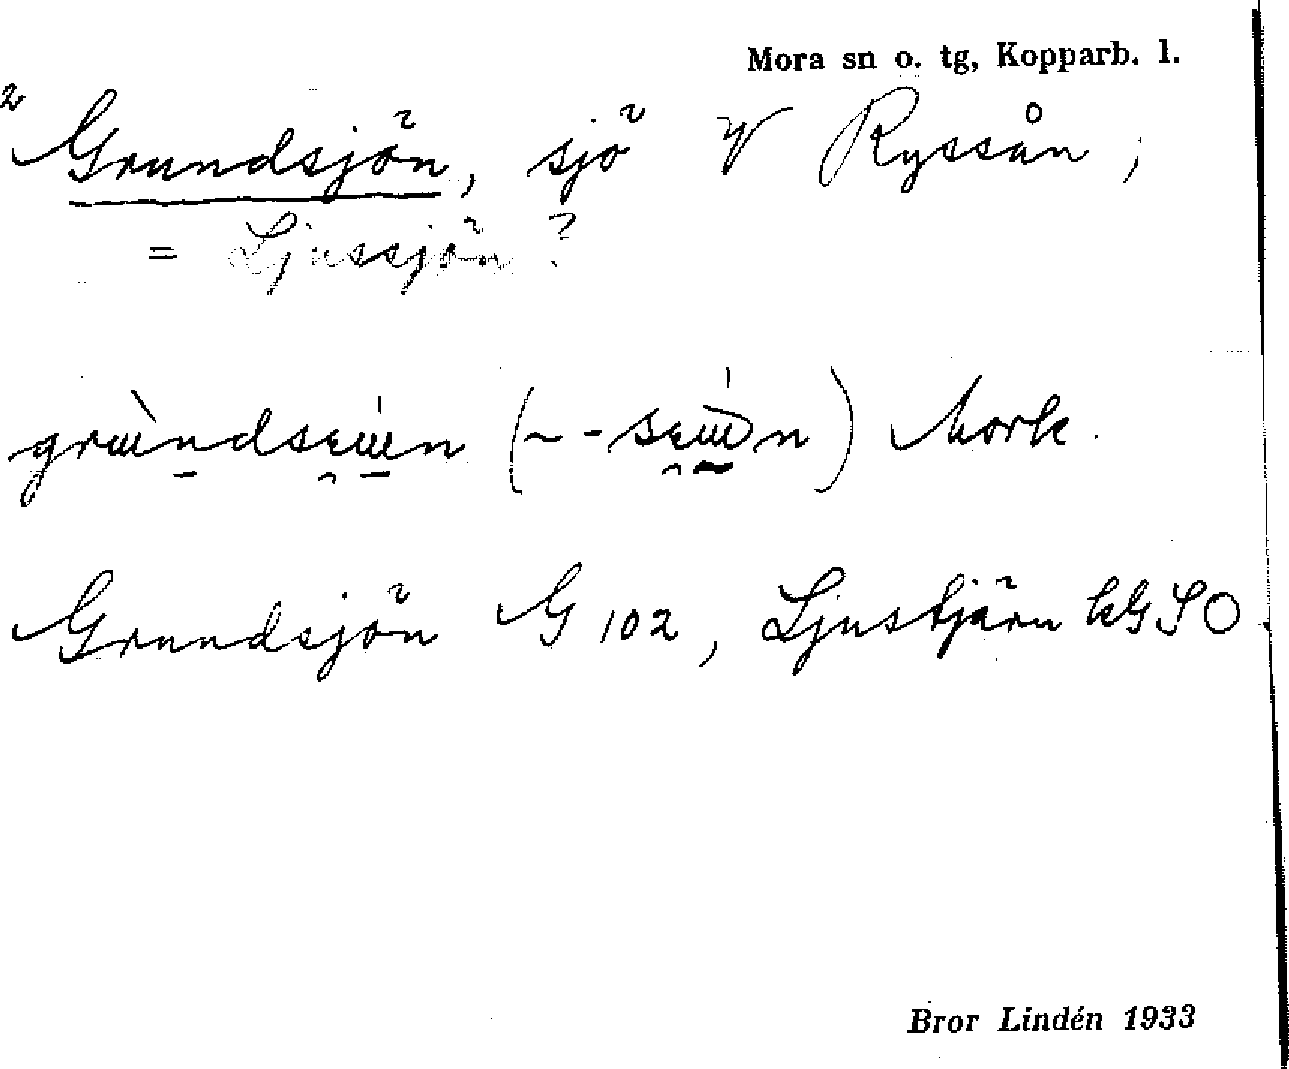 Mora sn o. tg, Kopparb. l.
2 Grundsjön, sjö V Ryssån;
= Ljussjön?
Mork.
Grundsjön G 102, Ljustjärn kGSO
Bror Lindén 1933